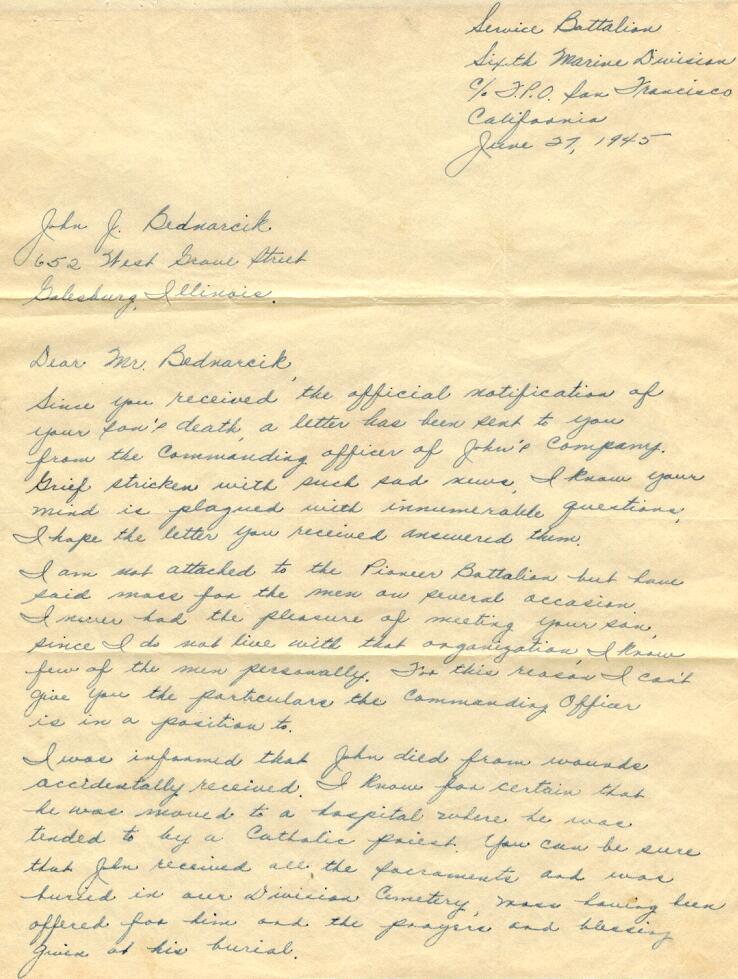 Service Battalion
Sixth Marine Division
c/o F.P.O. San Francisco
California
June 27, 1945
John J. Bednarcik
652 West Grove Street
Galesburg, Illinois.
Dear Mr. Bednarcik,
Since you received the official notification of
your son's death, a letter has been sent to you
from the Commanding officer of John's Company.
Grief stricken with such sad news, I know your
mind is plagued with innumerable questions,
I hope the letter you received answered them.
I am not attached to the Pioneer Battalion but have
said mass for the men on several occasion.
I never had the pleasure of meeting your son,
since I do not live with that organization, I know
few of the men personally. For this reason, I can't
give you the particulars the Commanding Officer
is in a position to.
I was informed that John died from wounds
accidentally received. I know for certain that
he was moved to a hospital where he was
tended to by a Catholic priest. You can be sure
that John received all the Sacraments and was
buried in our Division Cemetery, mass having been
offered for him and the prayers and blessing
given at his burial.